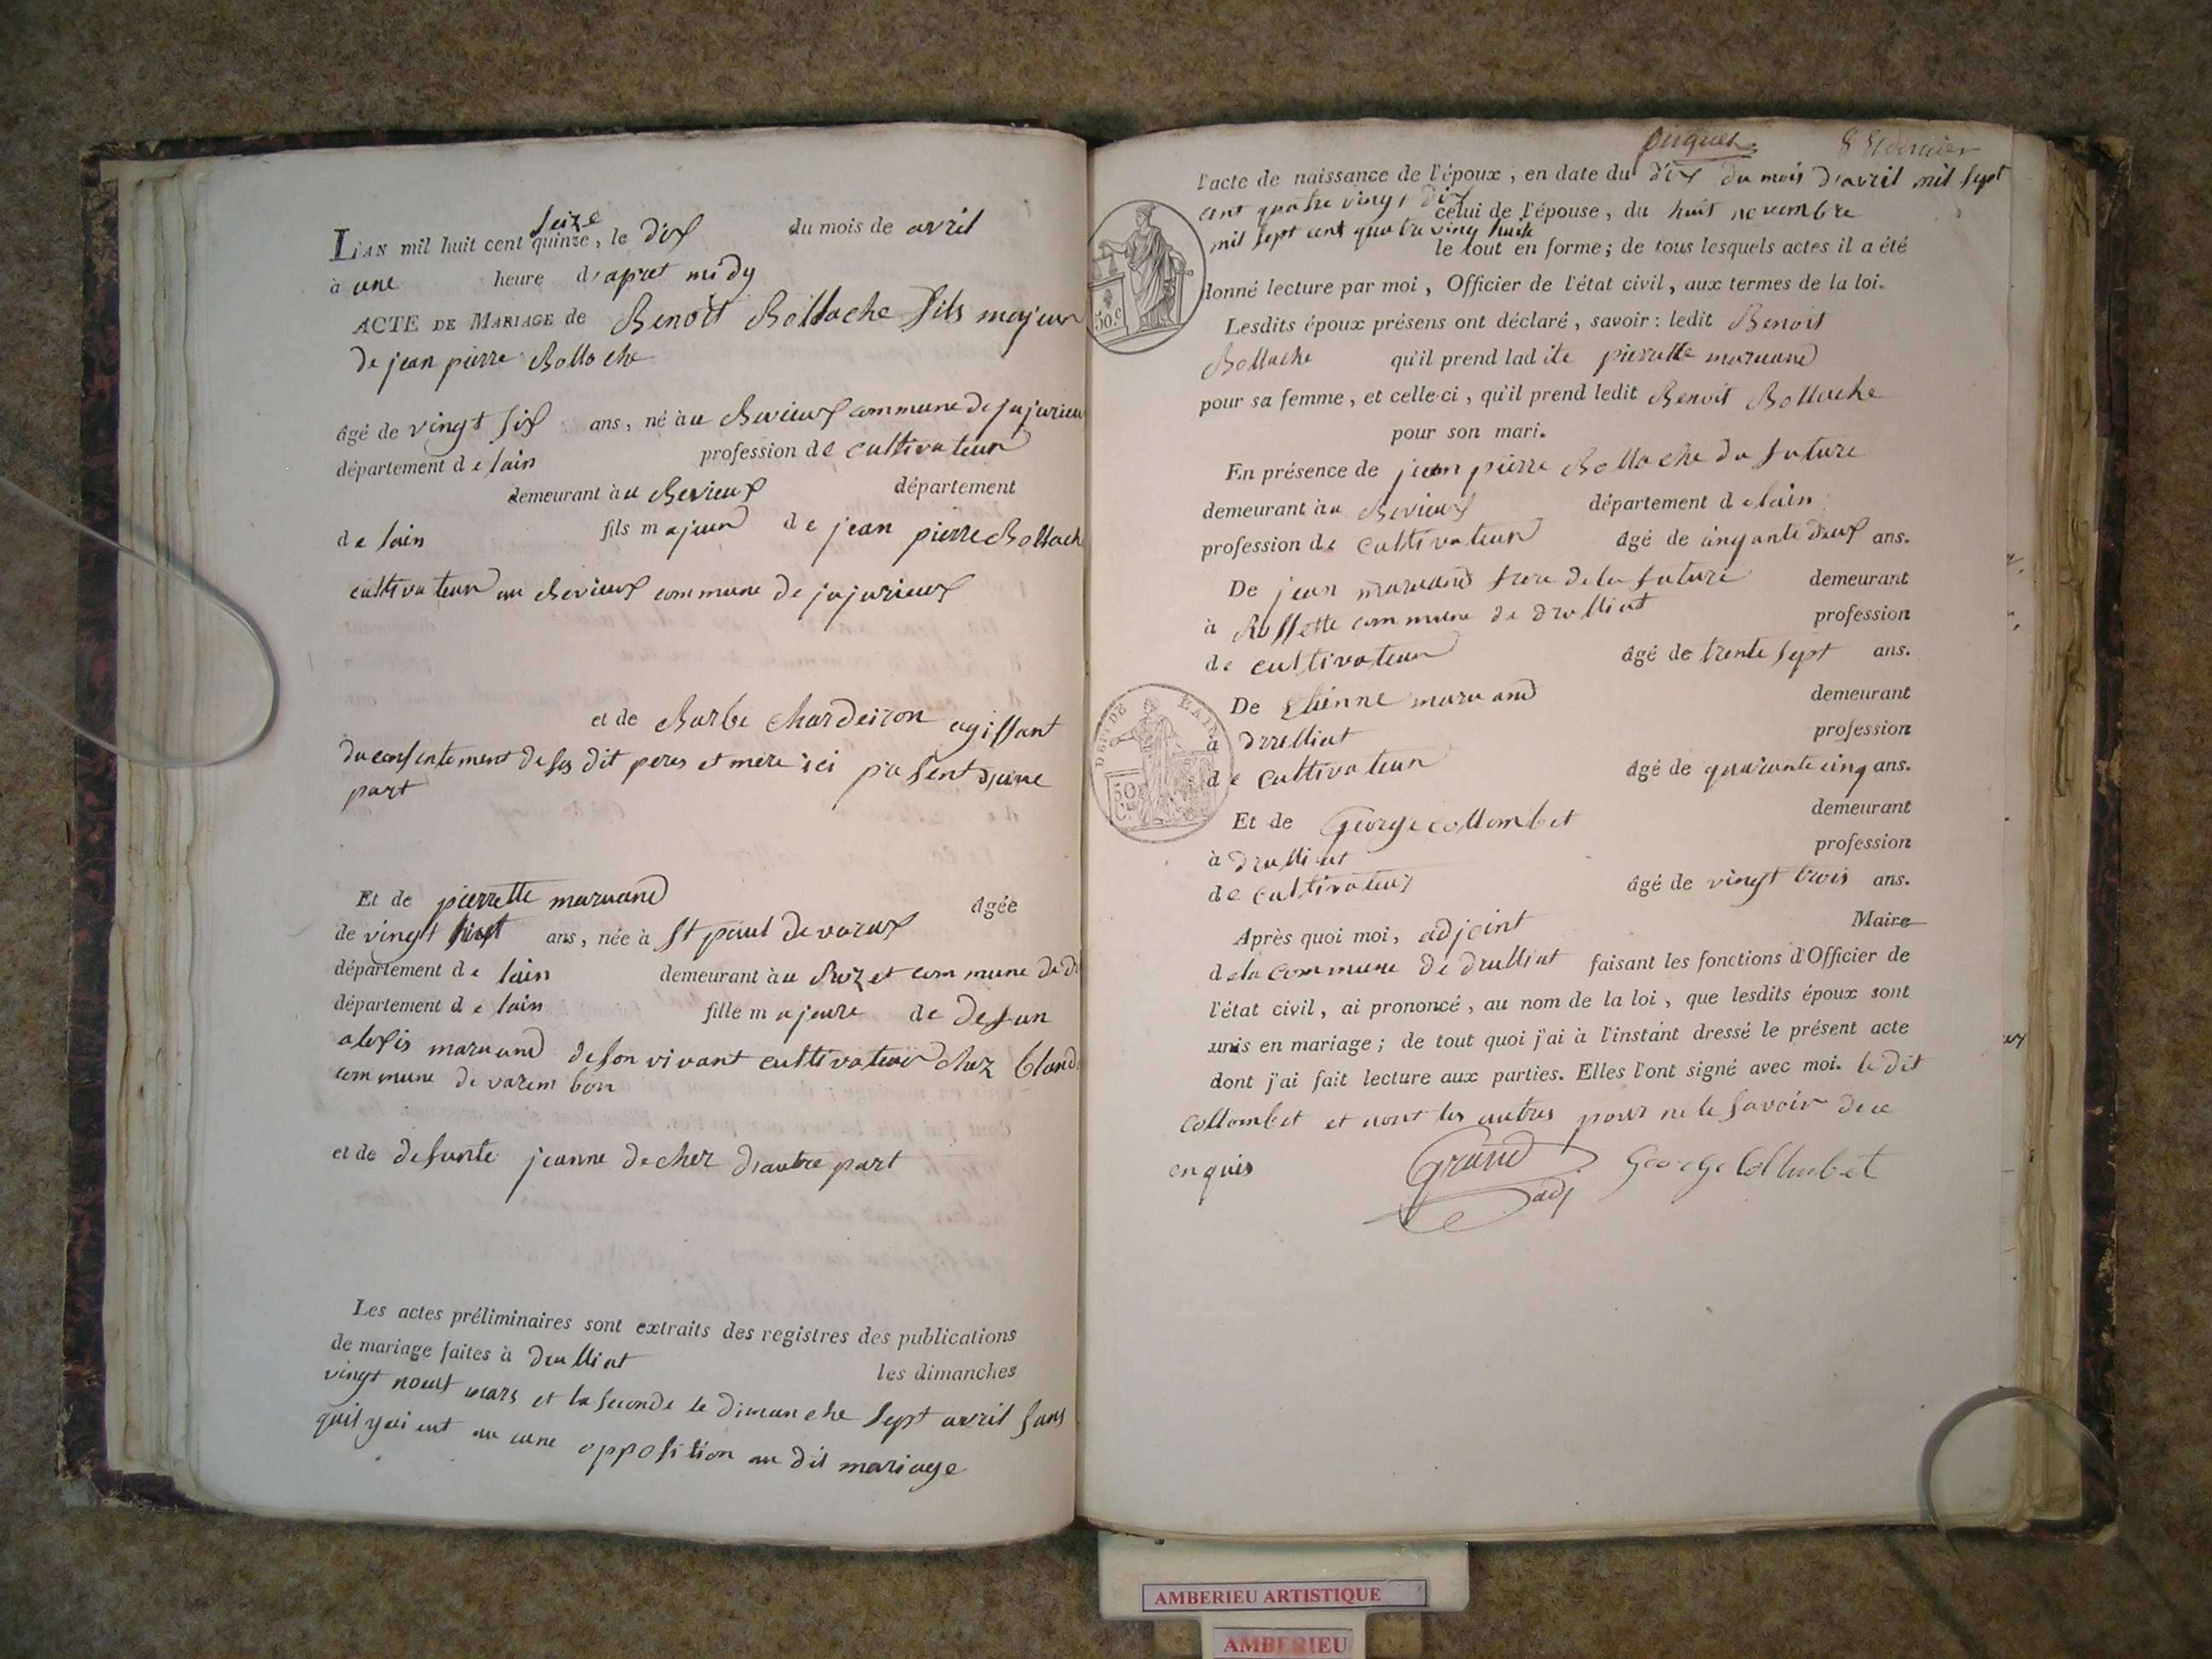 seize
L'AN mil huit cent quinze, le dix du mois de avril
à une heure d'apret midy
ACTE DE MARIAGE de Benoit Bollache fils majeur
de jean pierre Bollache
âgé de vingt six ans, né à u Chevieux commune de jujurieu
département de lain profession de cultivateur
demeurant à u Chevieux département
de lain fils majeur de jean pierre Bollach
cultivateur au Chevieux commune de jujurieux
et de Barbe Chardeiron agissant
du consentement de ses dit peres et mere ici present d'une
part
Et de pierrette maruand âgée
de vingt ans, née à St paul de varax
département de lain demeurant à u Suzet commune de dr
département de lain fille majeure de defun
alexis maruand de son vivant cultivateur chez bland
commune de varembon
et de defunte jeanne decher d'autre part
Les actes préliminaires sont extraits des registres des publications
de mariage faites à druilliat les dimanches
vingt neuf mars et la seconde le dimanche sept avril sans
quil y ai eut au cune opposition au dit mariage
l'acte de naissance de l'époux, en date du dix du mois d'avril mil sept
cent quatre vingt dix celui de l'épouse, du huit novembre
mil sept cent quatre ving huit
le tout en forme; de tous lesquels actes il a été
donné lecture par moi, Officier de l'état civil, aux termes de la loi.
Lesdits époux présens ont déclaré, savoir: ledit Benoit
Bollache qu'il prend ladite pierrette maruand
pour sa femme, et celle-ci, qu'il prend ledit Benoit Bollache
pour son mari.
En présence de jean pierre Bollache du future
demeurant à u Chevieux département de lain
profession de cultivateur âgé de cinqante deux ans.
De jean maruand frere de la future demeurant
à Rossette commune de druilliat profession
de cultivateur âgé de trente sept ans.
De Etienne maruand demeurant
à druilliat profession
de cultivateur âgé de quarante cinq ans.
Et de George collombet demeurant
à druilliat profession
de cultivateur âgé de vingt trois ans.
Après quoi moi, adjoint Maire
de la commune de druilliat faisant les fonctions d'Officier de
l'état civil, ai prononcé, au nom de la loi, que lesdits époux sont
unis en mariage; de tout quoi j'ai à l'instant dressé le présent acte
dont j'ai fait lecture aux parties. Elles l'ont signé avec moi. le dit
collombet et nont les autres pour ne le savoir de ce
enquis Grand adj George Collumbet
50.c
50
C.
AMBERIEU ARTISTIQUE
AMBERIEU